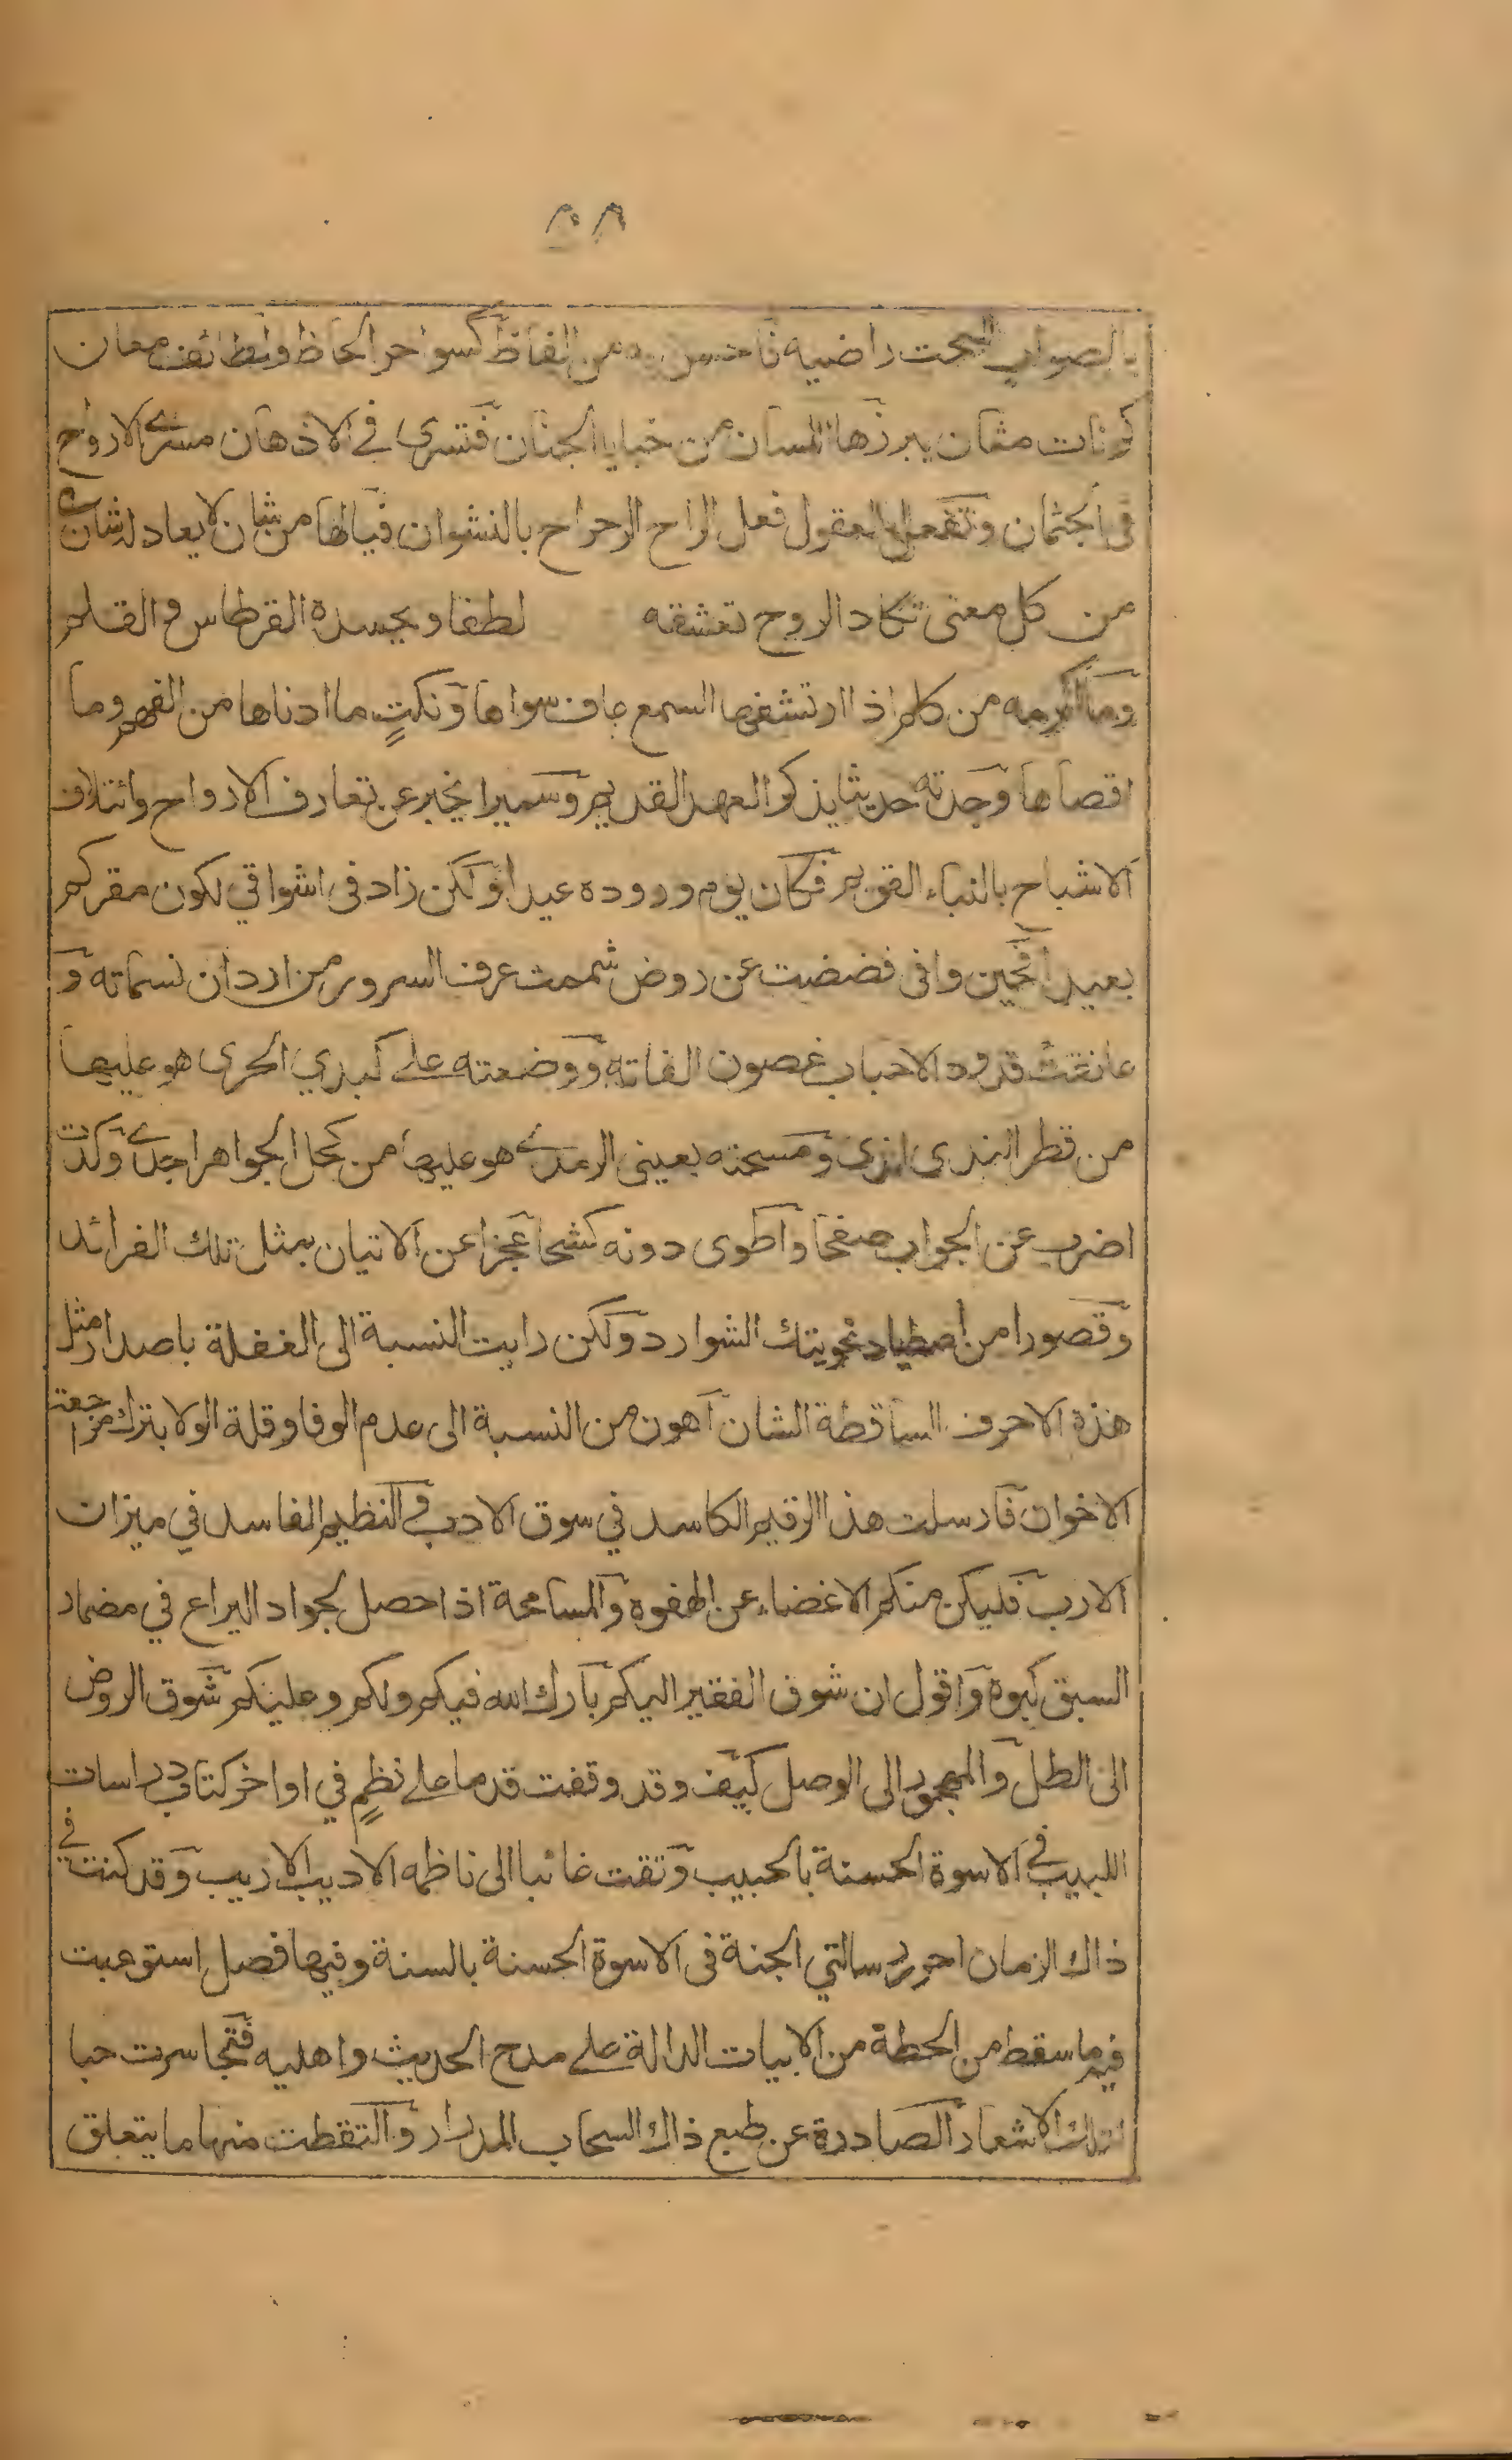 ٣٠٨
بالصواب البحت راضيه فاحسن به من الفاظ كسواحر الحاظ ولطائف معان
كرنات مثان يبرزها اللسان من خبايا الجنان فتسرى في الاذهان مسرے الارواح
فى الجثمان وتفعل بالعقول فعل الراح الرحراح بالنشوان فيالها من شان لا يعادله شان
من كل معنى تكاد الروح تعشقه لطفا ويحسده القرطاس والقلم
وما اكرمه من كلم اذا ارتشفها السمع عاف سواها ونكتٍ ما ادناها من الفهم وما
اقصاها وجدته حديثا يذكر العهد القديم وسميرا يخبر عن تعارف الارواح وائتلاف
الاشباح بالنباء القويم فكان يوم وروده عيدا ولكن زاد فى اشواقي لكون مقركم
بعيدا فحين وافى فضضت عن روض شممت عرف السرور من اردان نسماته و
عانقت قدود الاحباب غصون الفاته ووضعته علے كبدي الحرى هو عليها
من قطر الندى اندى ومسحته بعينى الرمدے هو عليها من كحل الجواهر اجدے وكدت
اضرب عن الجواب صفحا واطوى دونه كشحا عجزا عن الاتيان بمثل تلك الفرائد
وقصورا من اصطياد نحو يتك الشوارد ولكن رايت النسبة الى الغفلة باصدار مثل
هذه الاحرف الساقطة الشان اهون من النسبة الى عدم الوفا وقلة الولا بترك مراجعة
الاخوان فارسلت هذا الرقيم الكاسد في سوق الادب في النظيم الفاسد في ميزان
الارب فليكن منكم الاغضاء عن الهفوة والمسامحة اذا حصل لجواد اليراع في مضمار
السبق كبوة واقول ان شوق الفقير اليكم بارك الله فيكم ولكم وعليكم شوق الروض
الى الطل والمهجور الى الوصل كيف وقد وقفت قدما علے نظمٍ في اواخر كتاب دراسات
اللبيب في الاسوة الحسنة بالحبيب وتقت غائبا الى ناظمه الاديب الاريب وقد كنت في
ذاك الزمان احرر رسالتي الجنة فى الاسوة الحسنة بالسنة وفيها فصل استوعبت
فيه ما سقط من الحطة من الابيات الدالة علے مدح الحديث واهليه فتجاسرت حبا
لتلك الاشعار الصادرة عن طبع ذاك السحاب المدرار والتقطت منها ما يتعلق